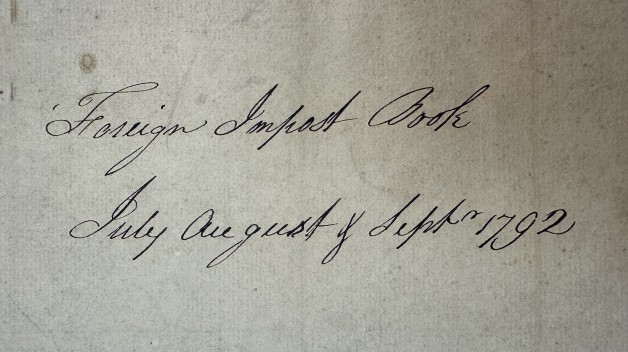 Foreign Impost Book
July August & Septr 1792